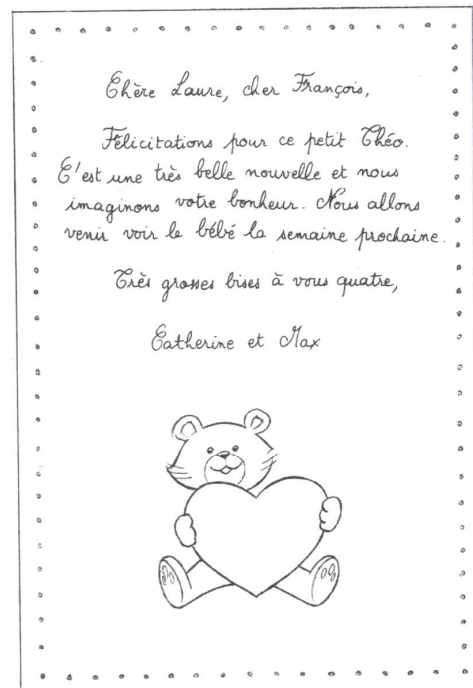 Chère Laure, cher François,
Félicitations pour ce petit Théo.
C'est une très belle nouvelle et nous
imaginons votre bonheur. Nous allons
venir voir le bébé la semaine prochaine.
Très grosses bises à vous quatre,
Catherine et Max